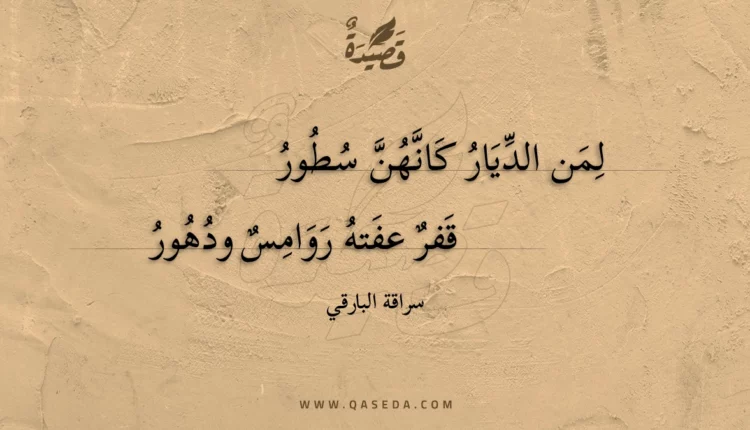 قَصِيدَةٌ
لِمَن الدِّيَارُ كَانَّهُنَّ سُطُورُ
قَفرٌ عفَتهُ رَوَامِسٌ ودُهُورُ
سراقة البارقي
WWW.QASEDA.COM